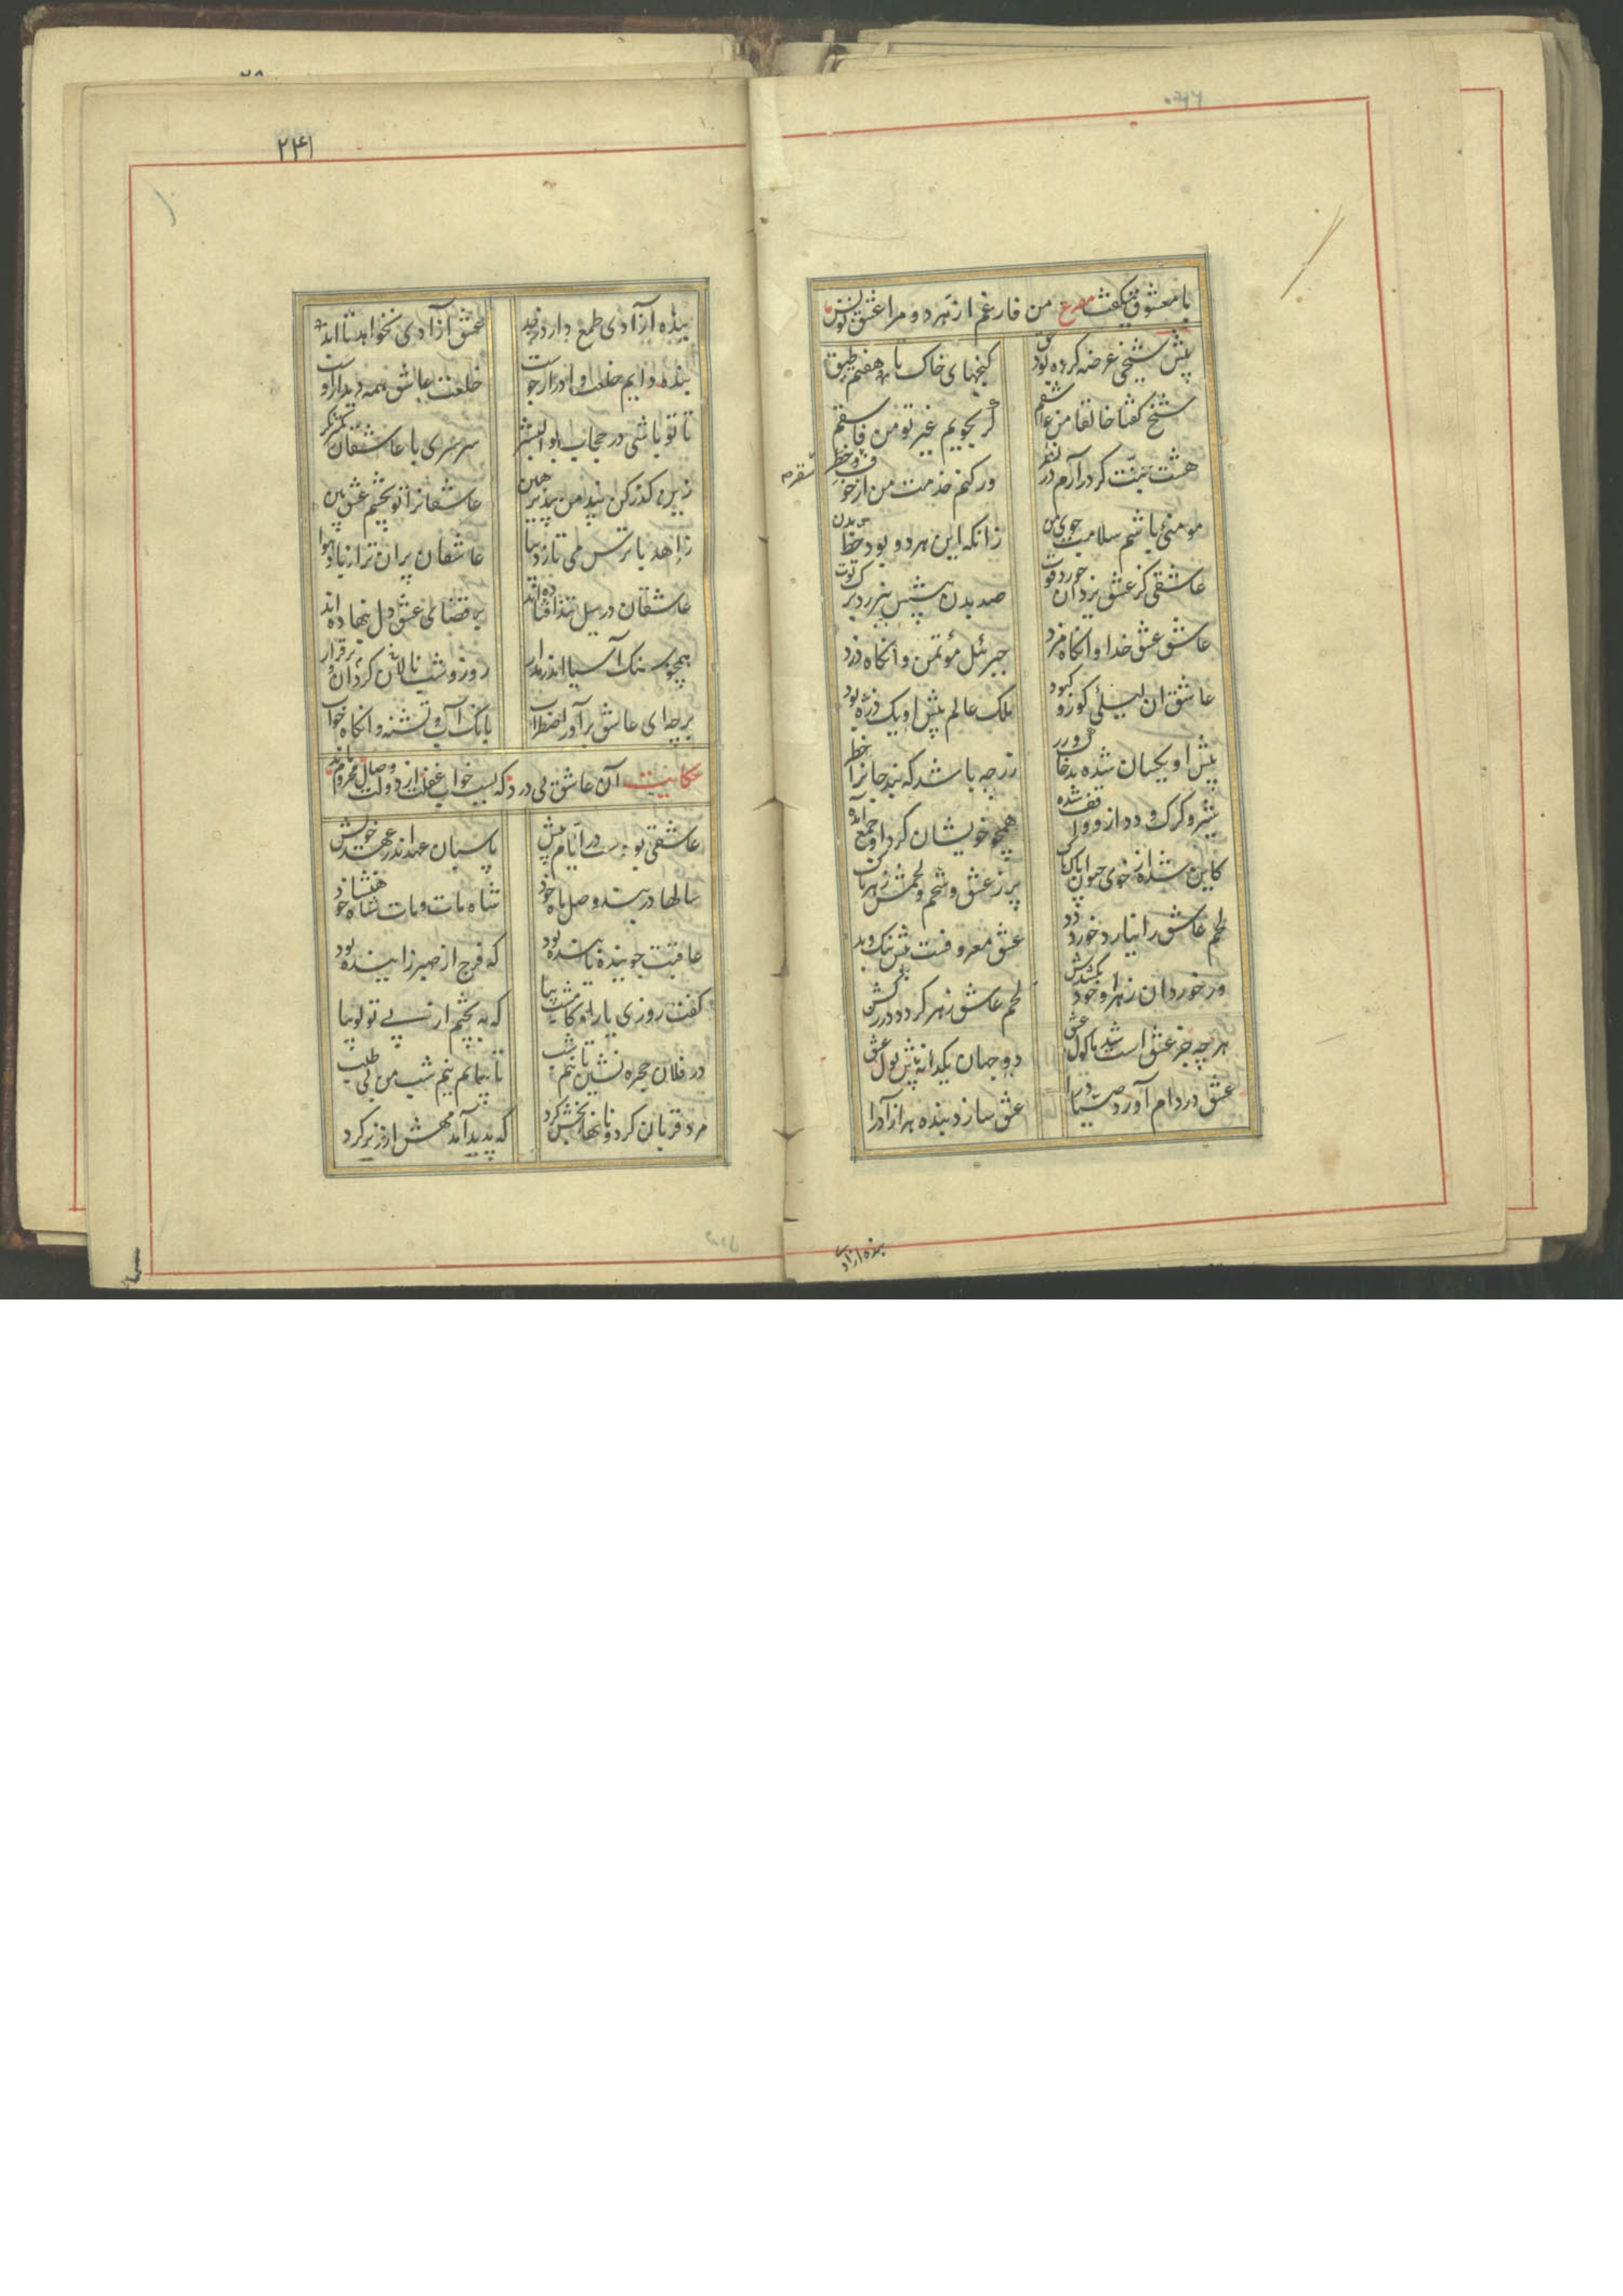 با معشوق میگفت مصرع من فارغم از هر دو مرا عشق تو بس
پیش شیخی عرضه کرده بود حق گنجهای خاک تا هفتم طبق
شیخ گفتا خالقا من عاشقم گر بجویم غیر تو من فاسقم
هشت جنت گر در آرم در نظر ور کنم خدمت من از خوف سقر
مومنی باشم سلامت جوی من زانکه این هر دو بود حظ بدن
عاشقی کز عشق یزدان خورد قوت صد بدن پیشش نیرزد تره توت
عاشق عشق خدا وانگاه مزد جبرئیل مؤتمن وانگاه دزد
عاشق آن لیلی کور و کبود ملک عالم پیش او یک ذره بود
پیش او یکسان شده بد خاک و زر زر چه باشد که نبد جانرا خطر
شیر و کرک و دد ازو واقف شده همچو خویشان کرد او جمع آمده
کاین شده از خوی حیوان پاک پاک پر ز عشق و شحم و لحمش زهرناک
لحم عاشق را نیارد خورد دد عشق معروفست پیش نیک و بد
ور خورد آن زهر او خود بکشدش لحم عاشق زهر کردد در کشش
هر چه جز عشق است شد ماکول عشق دو جهان یکدانه پیش نول عشق
عشق در دام آورد صیاد را عشق سازد بنده هر آزاد را
بنده آزاد
۲۴۱
بنده آزادی طمع دارد ز جد عشق آزادی نخواهد تا ابد
بنده دایم خلعت و ادرار جوست خلعت عاشق همه دیدار اوست
تا تو باشی در حجاب بوالبشر سرسری با عاشقان کمتر نگر
زین گذر کن پند من بپذیر هین عاشقانرا تو بچشم عشق بین
زاهد با ترس می تازد بپا عاشقان پران تر از باد و هوا
عاشقان در سیل تند افتاده اند بر قضای عشق دل بنهاده اند
همچو سنک آسیا اندر مدار روز و شب نالان و کردان بی قرار
برجه ای عاشق برآور اضطراب بانک آب و تشنه وانگاه خواب
حکایت آن عاشق بی درد که بسبب خواب غفلت از دولت وصال محروم ماند
عاشقی بودست در ایام پیش پاسبان عهد اندر عهد خویش
سالها در بند وصل ماه خود شاه مات و مات شاهنشاه خود
عاقبت جوینده یابنده بود که فرج از صبر زاینده بود
گفت روزی یار او کامشب بیا که بپختم از پی تو لوبیا
در فلان حجره نشین تا نیم شب تا بیایم نیم شب من بی طلب
مرد قربان کرد و نانها بخش کرد که پدید آمد مهش از زیر کرد